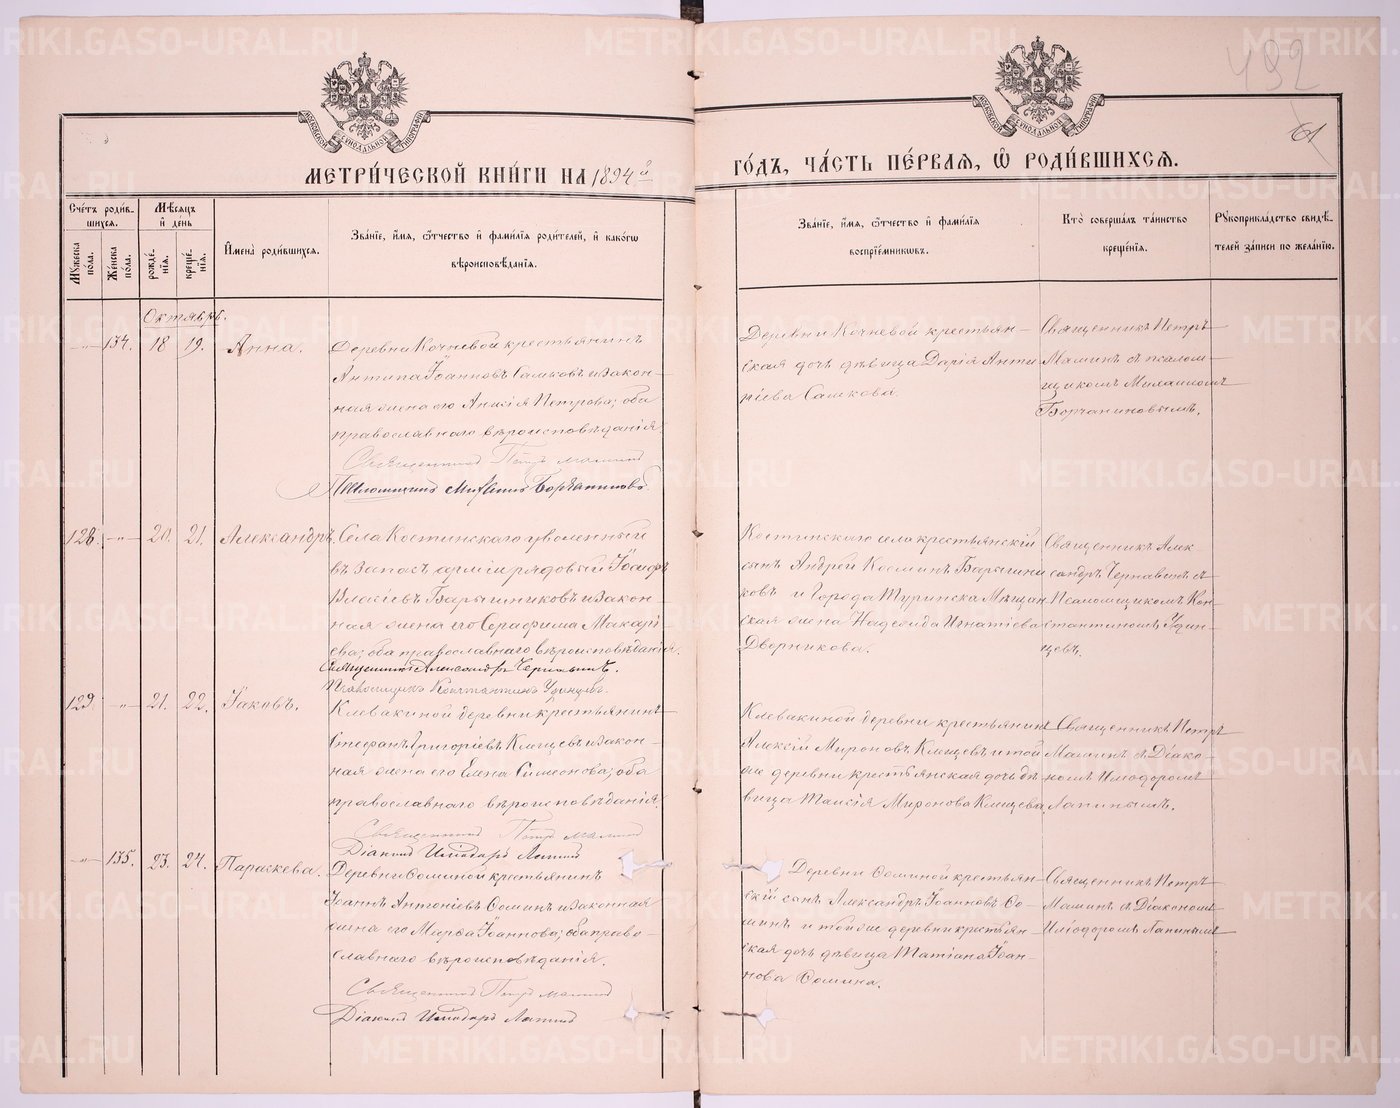 492
61
МЕТРИЧЕСКОЙ КНИГИ НА 1894й
ГОДЪ, ЧАСТЬ ПЕРВАЯ, Ѿ РОДИВШИХСЯ.
Счетъ родившихся.
Мужеска пола.
Женска пола.
Мѣсяцъ и день
рожденія.
крещенія.
Имена родившихся.
Званіе, имя, отчество и фамилія родителей, и какого
вѣроисповѣданія.
Званіе, имя, отчество и фамилія
воспріемниковъ.
Кто совершалъ таинство
крещенія.
Рукоприкладство свидѣ-
телей записи по желанію.
Октябрь.
134. 18 19. Анна.
Деревни Кочневой крестьянинъ
Антипа Іоанновъ Сашковъ и закон-
ная жена его Анисія Петрова; оба
православнаго вѣроисповѣданія.
Священникъ Петръ Маминъ
Псаломщикъ Михаилъ Борчаниновъ.
Деревни Кочневой крестьян-
ская дочь дѣвица Дарія Анти
піева Сашкова.
Священникъ Петръ
Маминъ съ псалом-
щикомъ Михаиломъ
Борчаниновымъ.
128. 20. 21. Александръ.
Села Костинскаго уволенный
въ запасъ арміи рядовый Іосифъ
Власіевъ Барышниковъ и закон-
ная жена его Серафима Макарі
ева; оба православнаго вѣроисповѣданія.
Священникъ Александръ Чернавинъ.
Псаломщикъ Константинъ Удинцевъ.
Костинскаго села крестьянскій
сынъ Андрей Косминъ Барышни
ковъ и Города Туринска Мѣщан
ская жена Надежда Игнатіева
Дверникова.
Священникъ Алек
сандръ Чернавинъ съ
Псаломщикомъ Кон-
стантиномъ Удин-
цевъ.
129. 21. 22. Іаковъ.
Клевакиной деревни крестьянинъ
Стефанъ Григоріевъ Клещевъ и закон-
ная жена его Елена Симеонова; оба
православнаго вѣроисповѣданія.
Священникъ Петръ Маминъ
Діаконъ Иліодоръ Лапинъ
Клевакиной деревни крестьянинъ
Алексій Мироновъ Клещевъ и той
же деревни крестьянская дочь дѣ
вица Таисія Миронова Клещева.
Священникъ Петръ
Маминъ съ Діако-
номъ Иліодоромъ
Лапинымъ.
135. 23. 24. Параскева.
Деревни Фоминой крестьянинъ
Іоаннъ Антоніевъ Фоминъ и законная
жена его Марфа Іоаннова; оба право-
славнаго вѣроисповѣданія.
Священникъ Петръ Маминъ
Діаконъ Иліодоръ Лапинъ
Деревни Фоминой крестьян-
скій сынъ Александръ Іоанновъ Фо-
минъ и той же деревни крестьян-
ская дочь дѣвица Татіана Іоан-
нова Фомина.
Священникъ Петръ
Маминъ съ Діакономъ
Иліодоромъ Лапинымъ